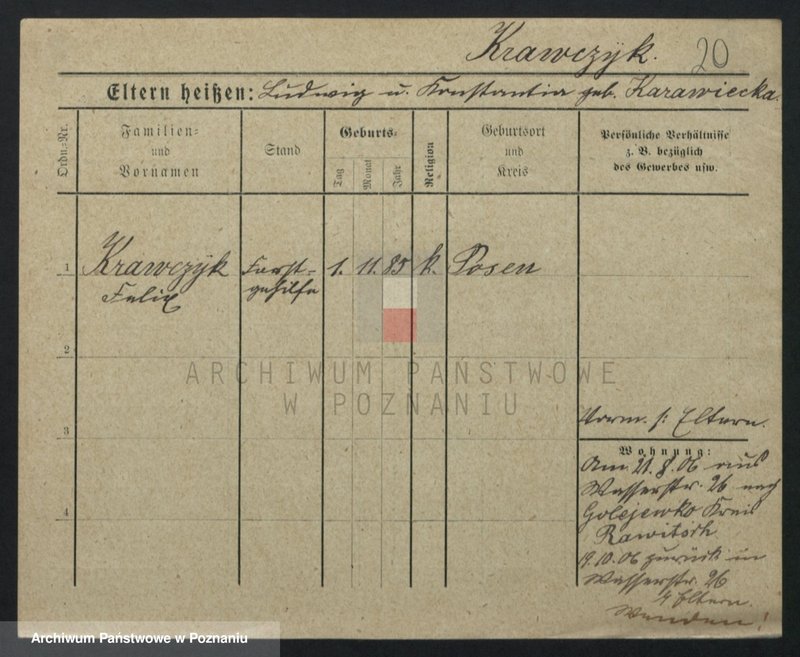 Krawczyk. 20
Eltern heißen: Ludwig u. Konstantia geb. Karawiecka.
Ordn.-Nr.
Familien-
und
Vornamen
Stand
Geburts-
Tag
Monat
Jahr
Religion
Geburtsort
und
Kreis
Persönliche Verhältnisse
z. B. bezüglich
des Gewerbes usw.
1 Krawczyk Forst- 1. 11. 85 k. Posen
Felix gehilfe
2
ARCHIWUM PAŃSTWOWE
W POZNANIU
3
Vorm. s: Eltern.
Wohnung:
Am 21. 8. 06 aus
Wasserstr. 26 nach
Golejewko Kreis
Rawitsch
19. 10. 06 zurück in
Wasserstr. 26
Eltern.
Wenden!
4
Archiwum Państwowe w Poznaniu